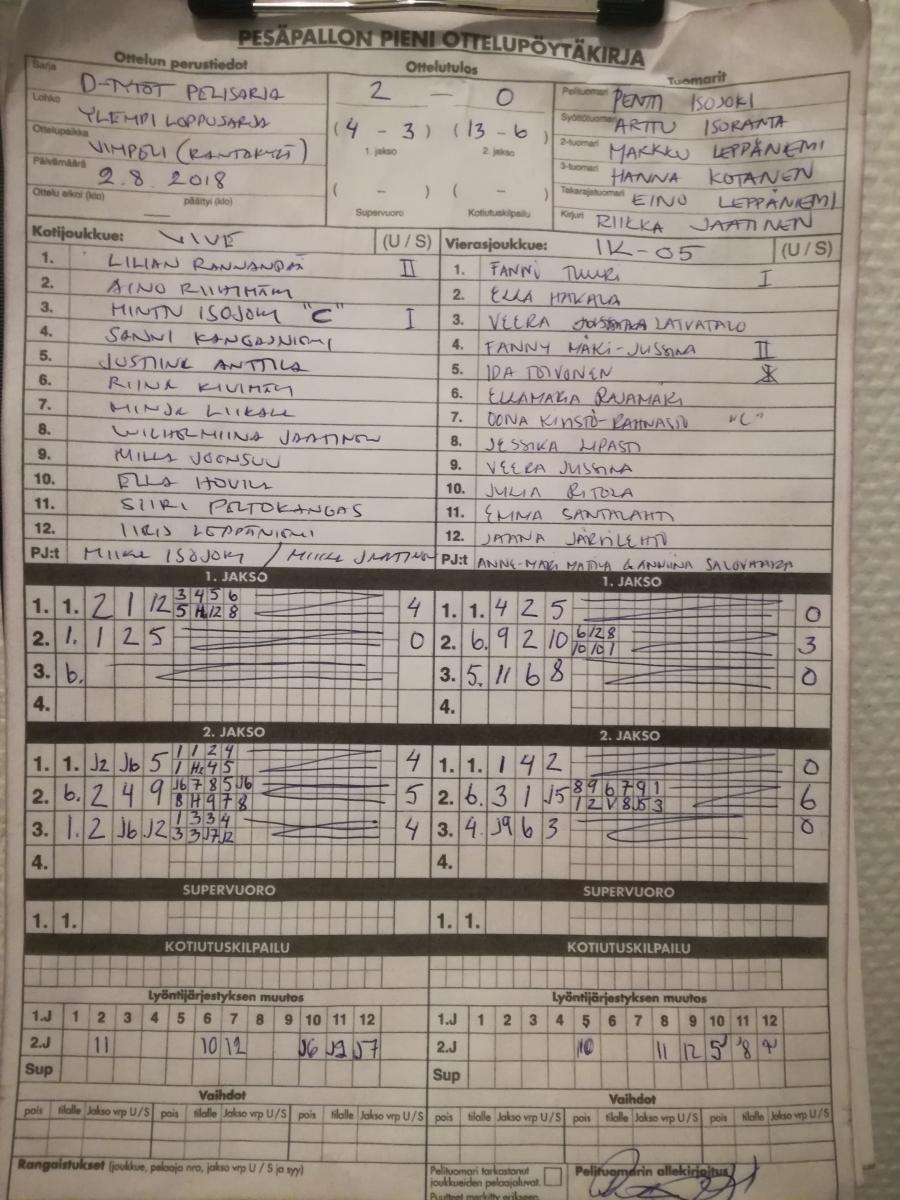 PESÄPALLON PIENI OTTELUPÖYTÄKIRJA
Ottelun perustiedot
Sarja D-TYTÖT PELISARJA
Lohko YLEMPI LOPPUSARJA
Ottelupaikka VIMPELI (RANTAKYLÄ)
Päivämäärä 2.8.2018
Ottelu alkoi (klo) päättyi (klo)
Ottelutulos
2 — 0
(4 - 3) (13 - 6)
1. jakso 2. jakso
( - ) ( - )
Supervuoro Kotiutuskilpailu
Tuomarit
Pelituomari PENTTI ISOJOKI
Syöttötuomari ARTTU ISORANTA
2-tuomari MARKKU LEPPÄNIEMI
3-tuomari HANNA KOTANEN
Takarajatuomari EINO LEPPÄNIEMI
Kirjuri RIIKKA JAATINEN
Kotijoukkue: VIVE (U / S)
1. LILIAN RANNANPÄÄ II
2. AINO RIIHIMÄKI
3. MINTU ISOJOKI "C" I
4. SANNI KANGASNIEMI
5. JUSTIINA ANTTILA
6. RIINA KIVIMÄKI
7. MINJA LIIKALA
8. WILHELMIINA JAATINEN
9. MILLA JOENSUU
10. ELLA HOVILA
11. SIIRI PELTOKANGAS
12. IIRIS LEPPÄNIEMI
PJ:t MIIKA ISOJOKI / MIIKA JAATINEN
Vierasjoukkue: IK-05 (U / S)
1. FANNI TUURI I
2. ELLA HAKALA
3. VEERA LATVATALO
4. FANNY MÄKI-JUSSINA II
5. IDA TOIVONEN
6. ELLAMARIA RAJAMÄKI
7. OONA KIVISTÖ-RAHNASTO "C"
8. JESSIKA LIPASTI
9. VEERA JUSSINA
10. JULIA RITOLA
11. EMMA SANTALAHTI
12. JAANA JÄRVILEHTO
PJ:t ANNE-MARI MATTILA & ANNIINA SALOVAARA
1. JAKSO
1. 1. 2 1 12 3 4 5 6 4
5 H 12 8
2. 1. 1 2 5 0
3. 6.
4.
1. JAKSO
1. 1. 4 2 5 0
2. 6. 9 2 10 6 12 8 3
10 10 1
3. 5. 11 6 8 0
4.
2. JAKSO
1. 1. J2 J6 5 1 1 2 4 4
1 H2 4 5
2. 6. 2 4 9 J6 7 8 5 J6 5
8 H 9 7 8
3. 1. 2 J6 J2 1 3 3 4 4
3 3 J7 J2
4.
2. JAKSO
1. 1. 1 4 2 0
2. 6. 3 1 J5 8 9 6 7 9 1 6
1 2 V 8 J5 3
3. 4. J9 6 3 0
4.
SUPERVUORO
1. 1.
SUPERVUORO
1. 1.
KOTIUTUSKILPAILU
KOTIUTUSKILPAILU
Lyöntijärjestyksen muutos
1.J 1 2 3 4 5 6 7 8 9 10 11 12
2.J 11 10 12 J6 J2 J7
Sup
Lyöntijärjestyksen muutos
1.J 1 2 3 4 5 6 7 8 9 10 11 12
2.J 10 11 12 5 8
Sup
Vaihdot
pois tilalle Jakso vrp U / S pois tilalle Jakso vrp U / S pois tilalle Jakso vrp U / S
Vaihdot
pois tilalle Jakso vrp U / S pois tilalle Jakso vrp U / S pois tilalle Jakso vrp U / S
Rangaistukset (joukkue, pelaaja nro, jakso vrp U / S ja syy)
Pelituomari tarkastanut
joukkueiden pelaajaluvat.
Puutteet merkitty erikseen
Pelituomarin allekirjoitus